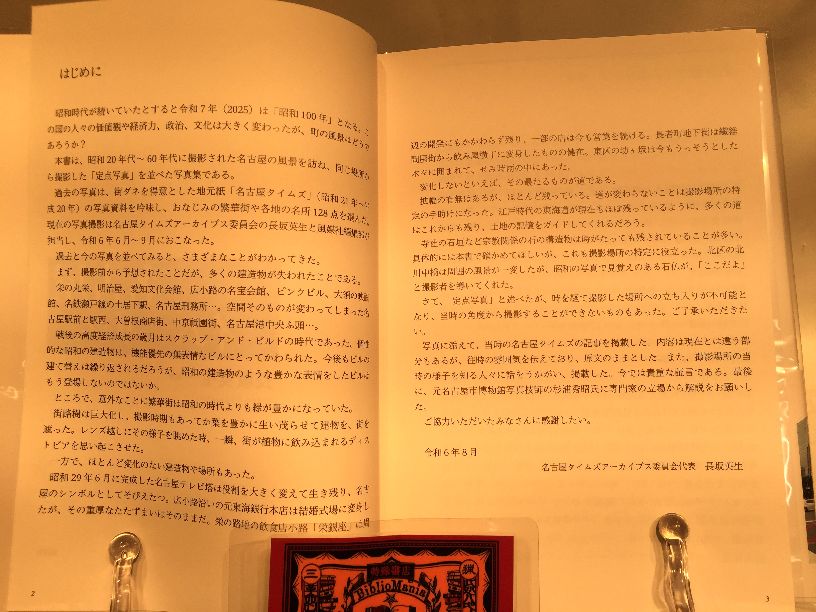 はじめに
昭和時代が続いていたとすると令和7年（2025）は「昭和100年」となる。こ
の国の人々の価値観や経済力、政治、文化は大きく変わったが、町の風景はどうで
あろうか？
本書は、昭和20年代〜60年代に撮影された名古屋の風景を訪ね、同じ場所か
ら撮影した「定点写真」を並べた写真集である。
過去の写真は、街ダネを得意とした地元紙「名古屋タイムズ」（昭和21年〜平
成20年）の写真資料を吟味し、おなじみの繁華街や各地の名所128点を選んだ。
現在の写真撮影は名古屋タイムズアーカイブス委員会の長坂英生と風媒社編集部が
担当し、令和6年6月〜9月におこなった。
過去と今の写真を並べてみると、さまざまなことがわかってきた。
まず、撮影前から予想されたことだが、多くの建造物が失われたことである。
栄の丸栄、明治屋、愛知文化会館、広小路の名宝会館、ピンクビル、大須の映画
館、名鉄瀬戸線の土居下駅、名古屋刑務所…。空間そのものが変わってしまった名
古屋駅前と駅西、大曽根商店街、中京競馬街、名古屋港中央ふ頭…。
戦後の高度経済成長の歳月はスクラップ・アンド・ビルドの時代であった。個性
的な昭和の建造物は、機能優先の無表情なビルにとってかわられた。今後もビルの
建て替えは繰り返されるだろうが、昭和の建造物のような豊かな表情をしたビルは
もう登場しないのではないか。
ところで、意外なことに繁華街は昭和の時代よりも緑が豊かになっていた。
街路樹は巨大化し、撮影時期もあってか葉を豊かに生い茂らせて建物を、街を
覆った。レンズ越しにその様子を眺めた時、一瞬、街が植物に飲み込まれるディス
トピアを思い起こさせた。
一方で、ほとんど変化のない建造物や場所もあった。
昭和29年6月に完成した名古屋テレビ塔は役割を大きく変えて生き残り、名古
屋のシンボルとしてそびえたつ。広小路沿いの元東海銀行本店は結婚式場に変身し
たが、その重厚なたたずまいはそのままだ。栄の路地の飲食店小路「栄銀座」は周
2
辺の開発にもかかわらず残り、一部の店は今も営業を続ける。長者町地下街は繊維
問屋街から飲み屋横丁に変身したものの健在、東区の幼ヶ坂は今もうっそうとした
木々に囲まれて、せみ時雨の中にあった。
変化しないといえば、その最たるものが道である。
拡幅の有無はあるが、ほとんど残っている。道が変わらないことは撮影場所の特
定の手助けになった。江戸時代の東海道が現在もほぼ残っているように、多くの道
はこれからも残り、土地の記憶をガイドしてくれるだろう。
寺社の石垣など宗教関係の石の構造物は時がたっても残されていることが多い。
具体的には本書で確かめてほしいが、これも撮影場所の特定に役立った。北区の北
川中橋は周囲の風景が一変したが、昭和の写真で見覚えのある石仏が、「ここだよ」
と撮影者を導いてくれた。
さて、「定点写真」と述べたが、時を隔て撮影した場所への立ち入りが不可能と
なり、当時の角度から撮影することができないものもあった。ご了承いただきた
い。
写真に添えて、当時の名古屋タイムズの記事を掲載した。内容は現在とは違う部
分もあるが、往時の雰囲気を伝えており、原文のままとした。また、撮影場所の当
時の様子を知る人々に話をうかがい、掲載した。今では貴重な証言である。最後
に、元名古屋市博物館写真技師の杉浦秀昭氏に専門家の立場から解説をお願いし
た。
ご協力いただいたみなさんに感謝したい。
令和6年8月
名古屋タイムズアーカイブス委員会代表　長坂英生
3
BiblioMania